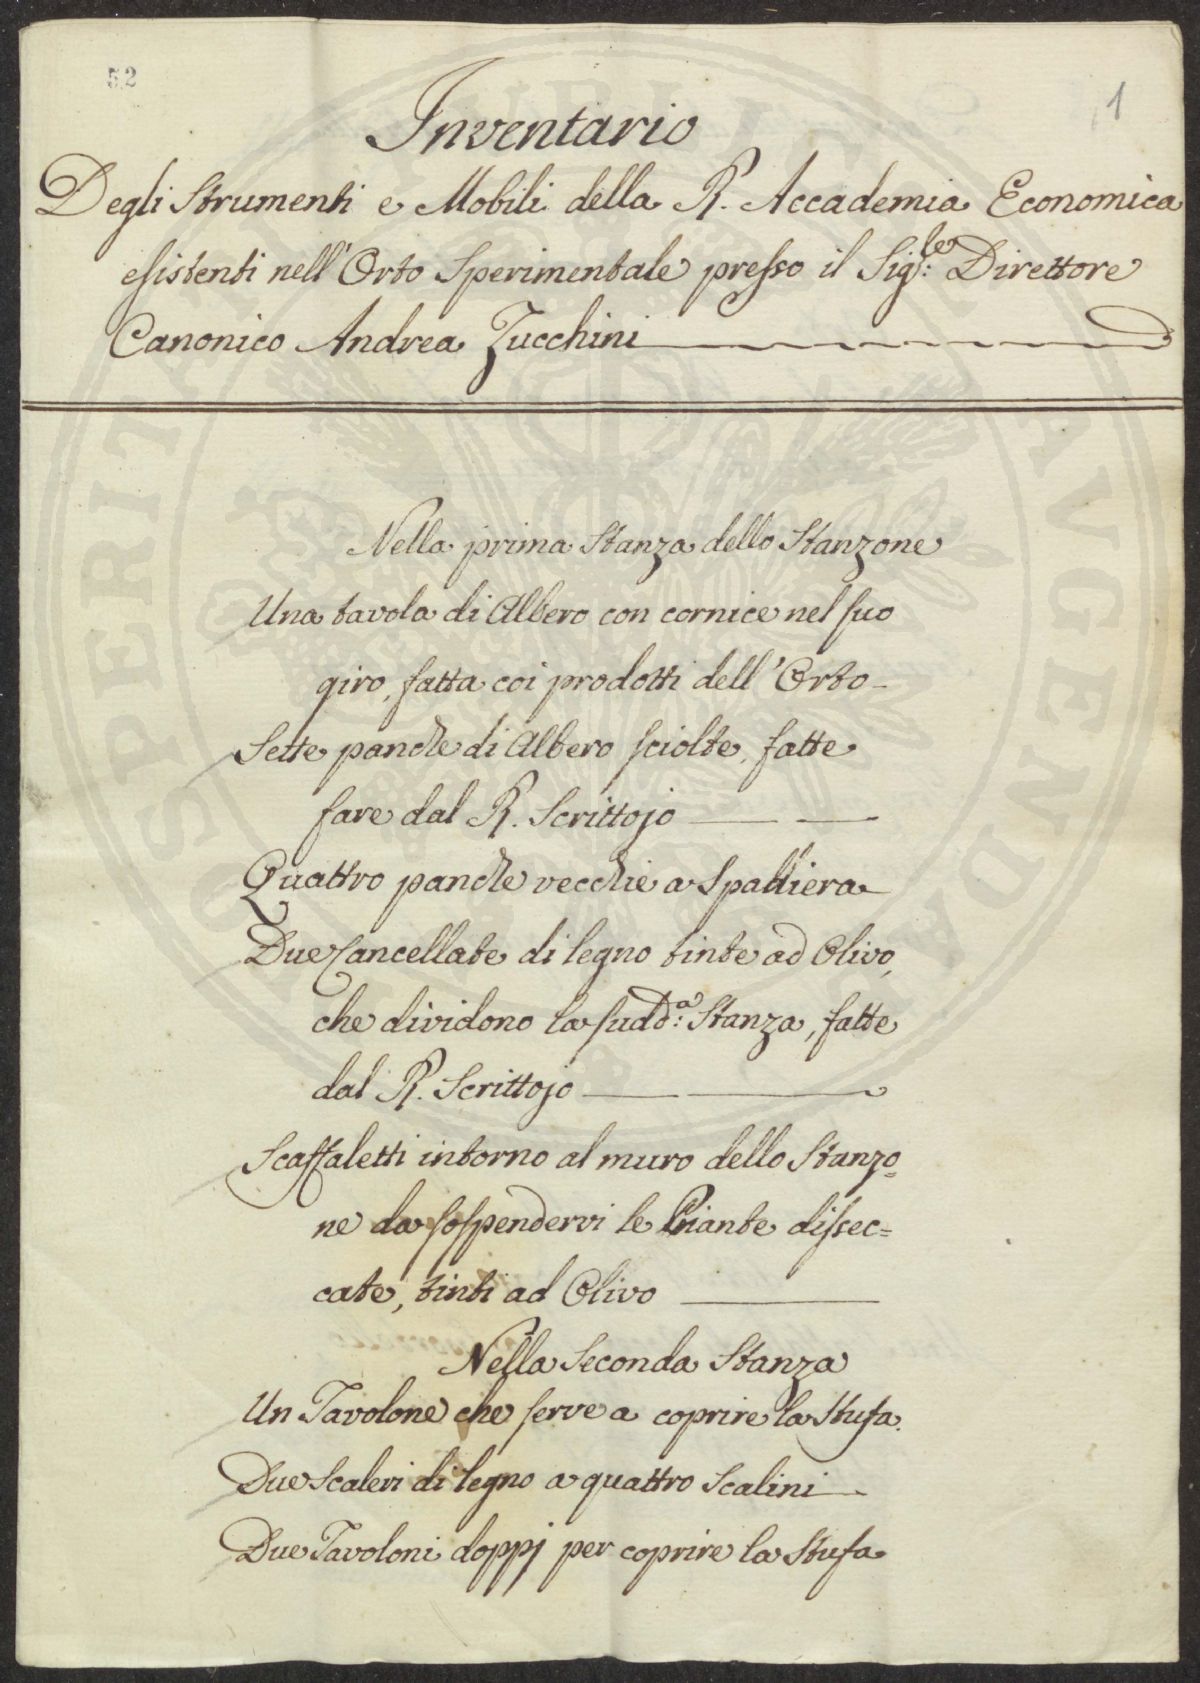 52
1
Inventario
Degli Strumenti e Mobili della R. Accademia Economica
esistenti nell'Orto Sperimentale presso il Sig.le Direttore
Canonico Andrea Zucchini
Nella prima Stanza dello Stanzone
Una tavola di Albero con cornice nel suo
giro, fatta coi prodotti dell'Orto
Sette panche di Albero sciolte, fatte
fare dal R. Scrittojo
Quattro panche vecchie a Spalliera
Due Cancellate di legno tinte ad Olivo,
che dividono la sudd.a Stanza, fatte
dal R. Scrittojo
Scaffaletti intorno al muro dello Stanzo=
ne da sospendervi le Piante dissec=
cate, tinti ad Olivo
Nella Seconda Stanza
Un Tavolone che serve a coprire la Stufa.
Due Scalei di legno a quattro Scalini
Due Tavoloni doppj per coprire la Stufa
PROSPERITATI PUBLICAE AUGENDAE